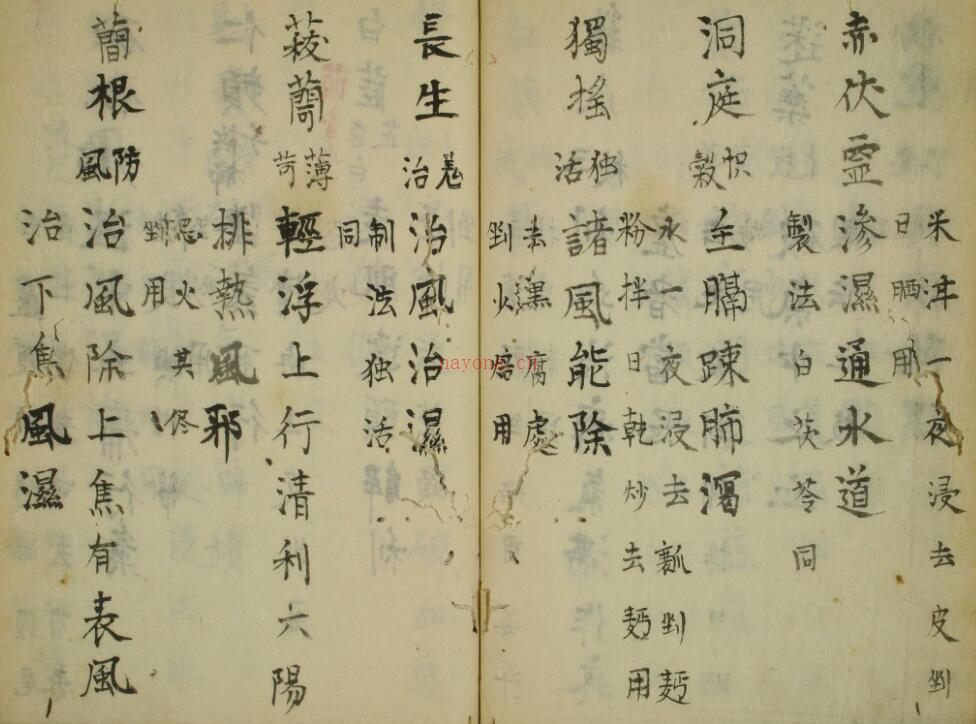 米泔一夜浸去皮剉
日晒用
赤伏霊
滲濕通水道
製法白茯苓同
洞庭
枳
穀
主膈踈肺瀉
水一夜浸去瓤剉麪
粉拌日乾炒去麪用
獨搖
独
活
諸風能除
去黒腐處
剉火焙用
長生
羗
治
治風治濕
制法独活
同
蔎蕳
薄
苛
輕浮上行清利六陽
排熱風邪
忌火其侭
剉用
蕳根
防
風
治風除上焦有表風
治下焦風濕
nayona.cn